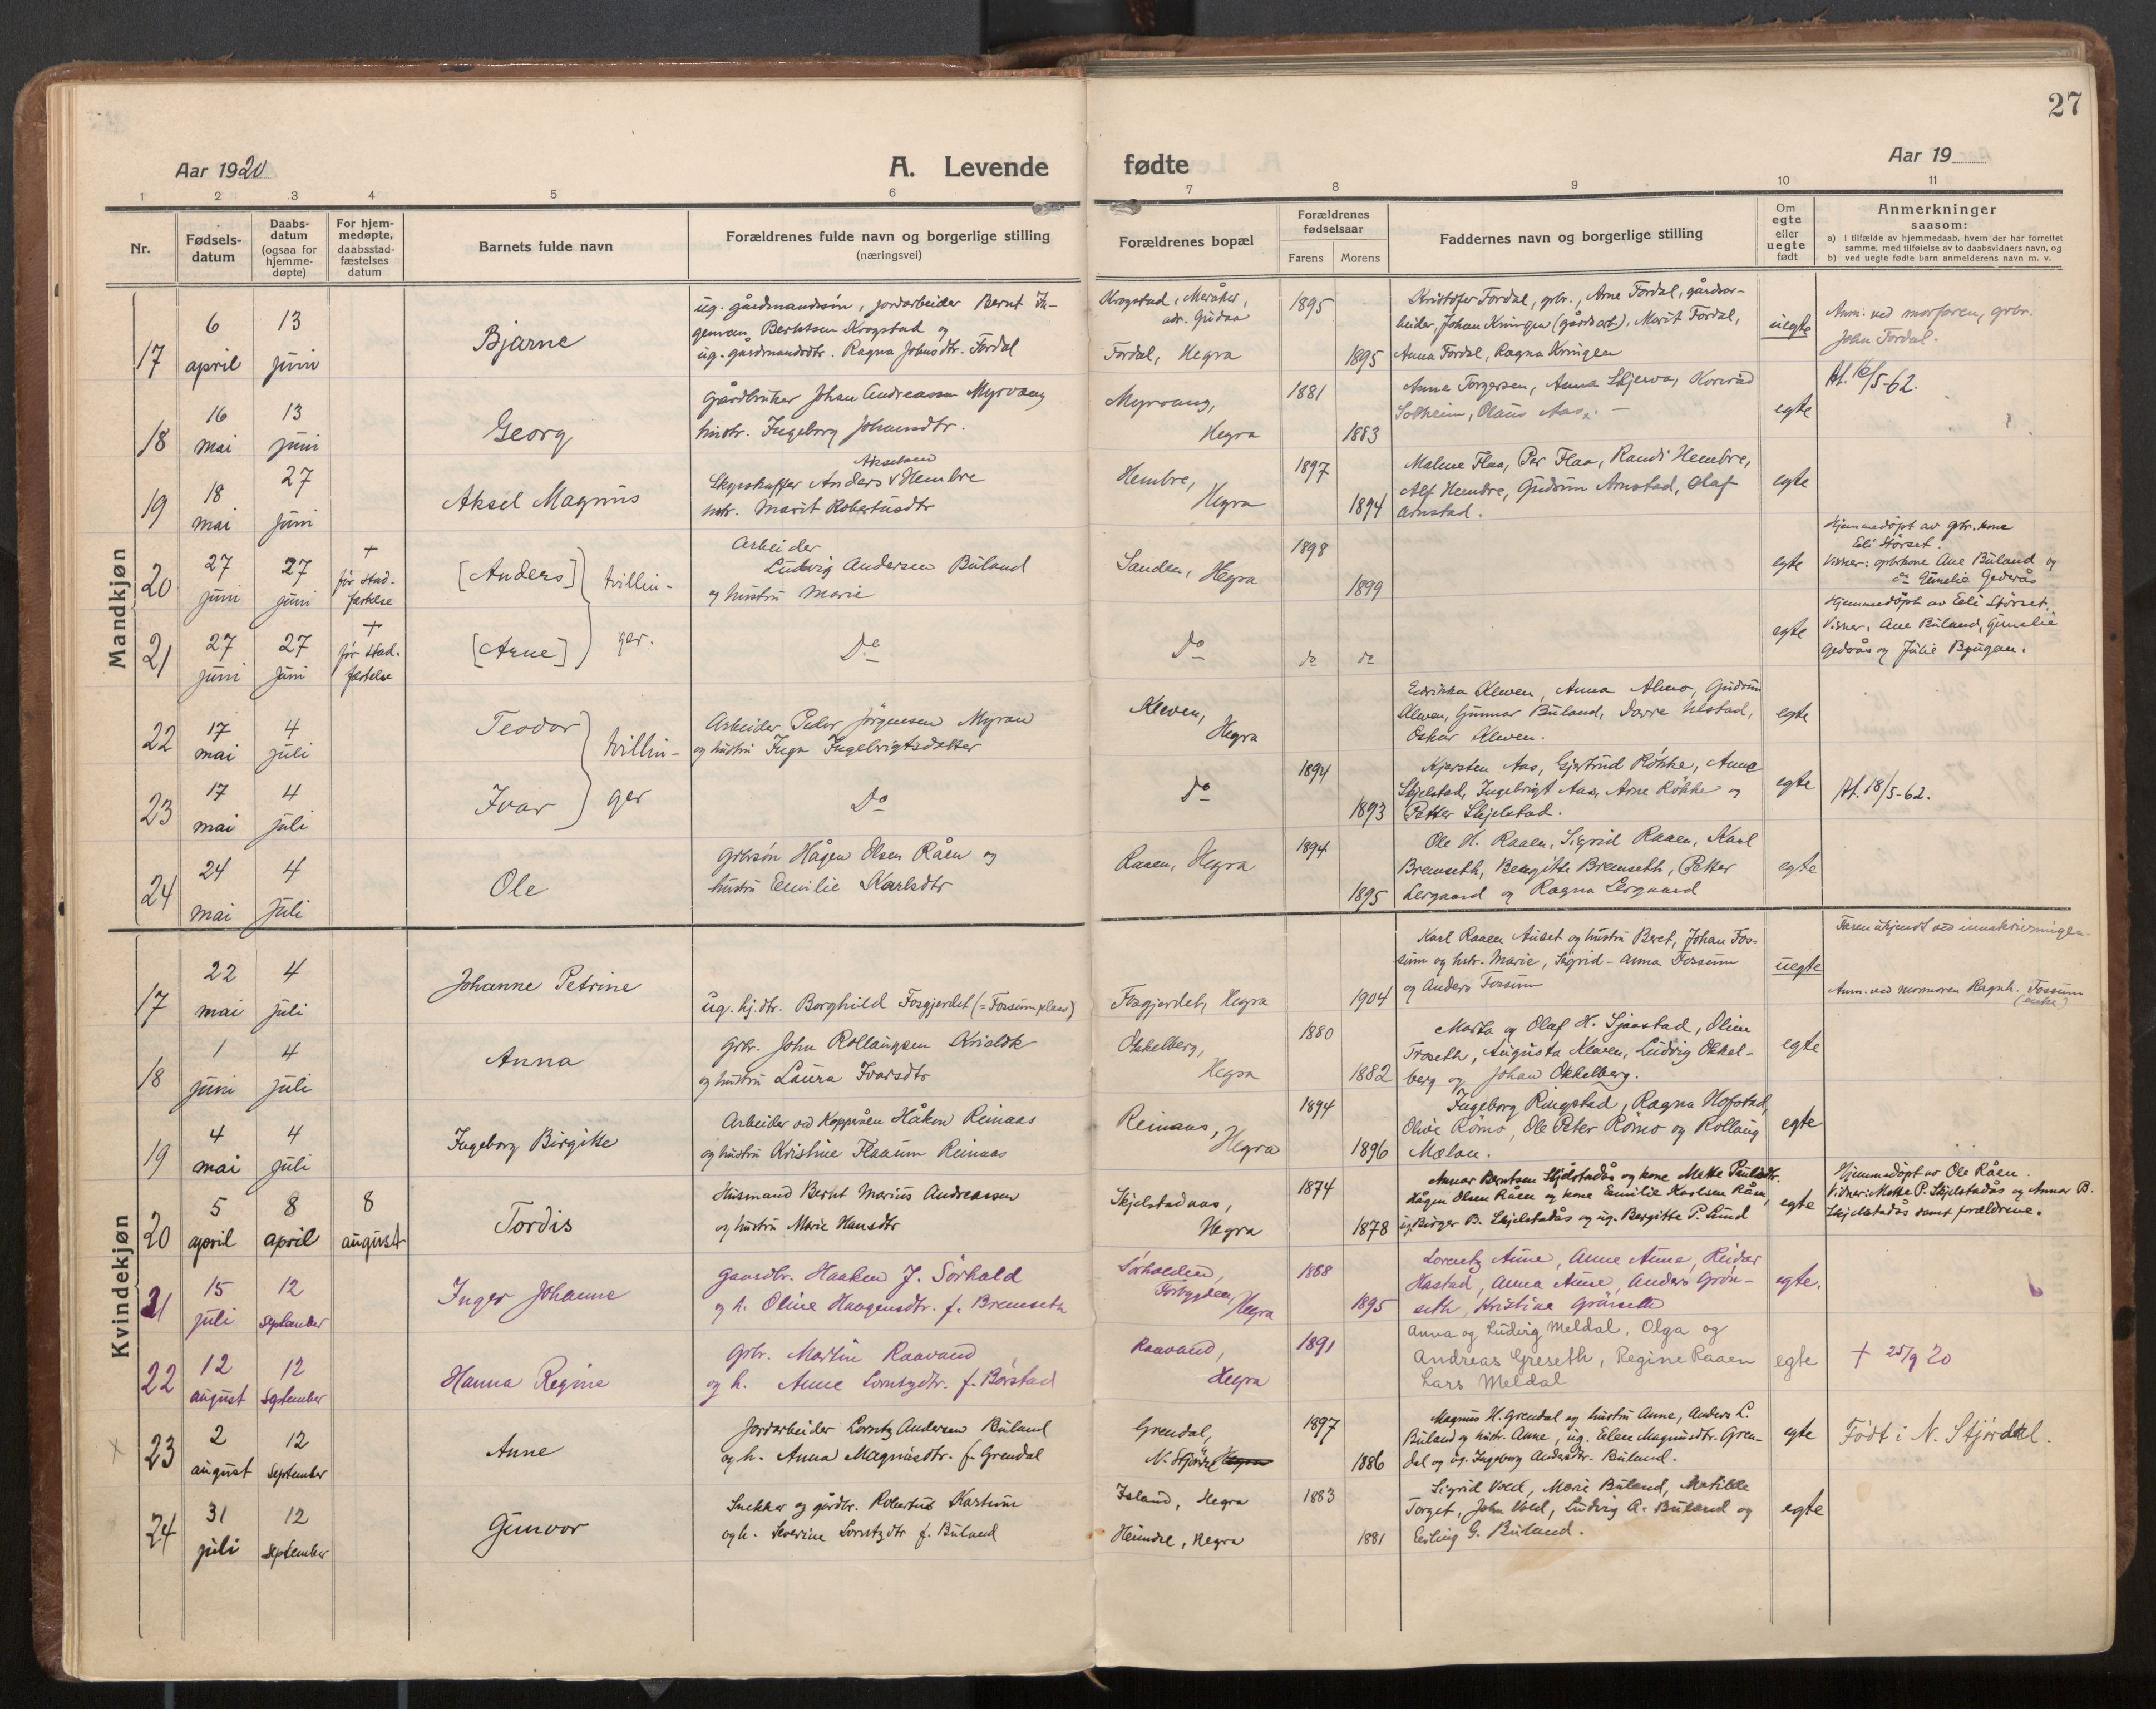 27
Aar 1920
A. Levende
fødte
Aar 19
1 2 3 4 5 6 7 8 9 10 11
Nr.
Fødsels-
datum
Daabs-
datum
(ogsaa for
hjemme-
døpte)
For hjem-
medøpte,
daabsstad-
fæstelses
datum
Barnets fulde navn
Forældrenes fulde navn og borgerlige stilling
(næringsvei)
Forældrenes bopæl
Forældrenes
fødselsaar
Farens Morens
Faddernes navn og borgerlige stilling
Om
egte
eller
uegte
født
Anmerkninger
saasom:
a) i tilfælde av hjemmedaab, hvem der har forrettet
samme, med tilføielse av to daabsvidners navn, og
b) ved uegte fødte barn anmelderens navn m. v.
Mandkjøn
17
6
april
13
juni
Bjarne
ug. gårdmandssøn, jordarbeider Bernt In-
geman Berntsen Krogstad og
ug. gårdmandsdtr. Ragna Johnsdtr. Fordal
Krogstad, Meråker,
adr. Gudaa
Fordal, Hegra
1895
1895
Kristofer Fordal, grbr., Arne Fordal, gårdsar-
beider, Johan Kringen (gårdarb), Marit Fordal,
Anna Fordal, Ragna Kringen
uegte
Anm. ved morfaren, grbr.
John Fordal.
18
16
mai
13
juni
Georg
Gårdbruker Johan Andreassen Myrvang
hustr. Ingeborg Johansdtr.
Myrvang,
Hegra
1881
1883
Anne Torgersen, Anna Skjerva, Konrad
Solheim, Olaus Aas.
egte
At. 16/5-62.
19
18
mai
27
juni
Aksel Magnus
Akselsen
Skysskaffer Anders v Hembre
hstr. Marit Robertusdtr
Hembre,
Hegra
1897
1894
Malene Flaa, Per Flaa, Randi Hembre,
Alf Hembre, Gudrun Arnstad, Olaf
Arnstad.
egte
20
27
juni
27
juni
+
før stad-
festelse
[Anders]
tvillin-
Arbeider
Ludvig Andersen Buland
og hustru Marie
Sanden, Hegra
1898
1899
egte
Hjemmedøpt av grbr. kone
Eli Størset.
Visner: grbrkone Ane Buland og
do Gunelie Gederås
21
27
juni
27
juni
+
før stad-
festelse
[Arne]
ger.
Do
Do
do
do
egte
Hjemmedøpt av Eli Størset.
Visner: Ane Buland, Gunelie
Gederås og Julie Bjugan.
22
17
mai
4
juli
Teodor
tvillin-
Arbeider Peder Jørgensen Myran
og hustru Inga Ingebrigtsdatter
Kleven,
Hegra
Edrikka Kleven, Anna Almo, Gudrun
Kleven, Gunnar Buland, Dorre Ulstad,
Oskar Kleven.
egte
23
17
mai
4
juli
Ivar
ger
Do
Do
1894
1893
Kjersten Aas, Gjertrud Røkke, Anna
Skjelstad, Ingebrigt Aas, Arne Røkke og
Petter Skjelstad.
egte
At. 18/5-62.
24
24
mai
4
juli
Ole
Grbrsøn Hågen Olsen Råen og
hustru Emilie Karlsdtr
Raaen, Hegra
1894
1895
Ole H. Raaen, Sigrid Raaen, Karl
Bremseth, Bengitte Bremseth, Petter
Lergaard og Ragna Lergaard
egte
Kvindekjøn
17
22
mai
4
juli
Johanne Petrine
ug. hj. dtr. Borghild Fosgjerdet (= Fossum plass)
Fosgjerdet, Hegra
1904
Karl Raaen Auset og hustru Beret, Johan Fos-
sum og hstr. Marie, Sigrid-Anna Fossum
og Anders Fossum
uegte
Faren ukjendt ved innskrivningen.
Anm. ved mormoren Ragnh. Fossum
(enke)
18
1
juni
4
juli
Anna
Grbr. John Rollaugsen
og hustru Laura Ivarsdtr
Okkelberg,
Hegra
1880
1882
Marta og Olaf H. Sjaastad, Oline
Troseth, Augusta Kleven, Ludvig Okkel-
berg og Johan Okkelberg.
egte
19
4
mai
4
juli
Ingeborg Birgitte
Arbeider ved Kopperåen Håkon Reinaas
og hustru Kristine Flaaum Reinaas
Reinaas,
Hegra
1894
1896
Ingeborg Ringstad, Ragna Hofstad,
Olive Rømo, Ole Peter Rømo og Rollaug
Mælan.
egte
20
5
april
8
april
8
august
Tordis
Husmand Bernt Marius Andreassen
og hustru Marie Hansdtr
Skjelstadaas,
Hegra
1874
1878
Annar Berntsen Skjelstadås og kone Mette Paulsdtr.
Hågen Olsen Råen og kone Emilie Karlsen Råen,
ug. Birger B. Skjelstadås og ug. Bergitte P. Lund
egte
Hjemmedøpt av Ole Råen.
Vidner: Mette P. Skjelstadås og Annar B.
Skjelstadås samt forældrene.
21
15
juli
12
September
Inger Johanne
Gaardbr. Haaken J. Sørhald
og h. Oline Haagensdtr. f. Bremseth
Sørholden,
Forbygden,
Hegra
1888
1895
Lorentz Aune, Anne Aune, Reidar
Hastad, Anna Aune, Anders Grøn-
seth, Kristine Grønseth
egte.
22
12
august
12
September
Hanna Regine
Grbr. Martin Raavand
og h. Anne Lorntzdtr. f. Børstad
Raavand,
Hegra
1891
Anna og Ludvig Meldal, Olga og
Andreas Greseth, Regine Raaen
Lars Meldal
egte
+ 25/9 20
x
23
2
august
12
September
Anne
Jordarbeider Lorntz Andersen Buland
og h. Anna Magnusdtr. f. Grendal
Grendal,
N. Stjørdal Hegra
1897
1886
Magnus H. Grendal og hustru Anne, Anders L.
Buland og hustr. Anne, ug. Elen Magnusdtr. Gren-
dal og ug. Ingeborg Andersdtr. Buland.
egte
Født i N. Stjørdal.
24
31
juli
12
September
Gunvor
Snekker og gårdbr. Robertus Kastum
og h. Severine Lorntzdtr f. Buland
Island, Hegra
Heimdel, Hegra
1883
1881
Sigrid Vold, Marie Buland, Matilde
Torget, John Vold, Ludvig A. Buland og
Erling G. Buland.
egte